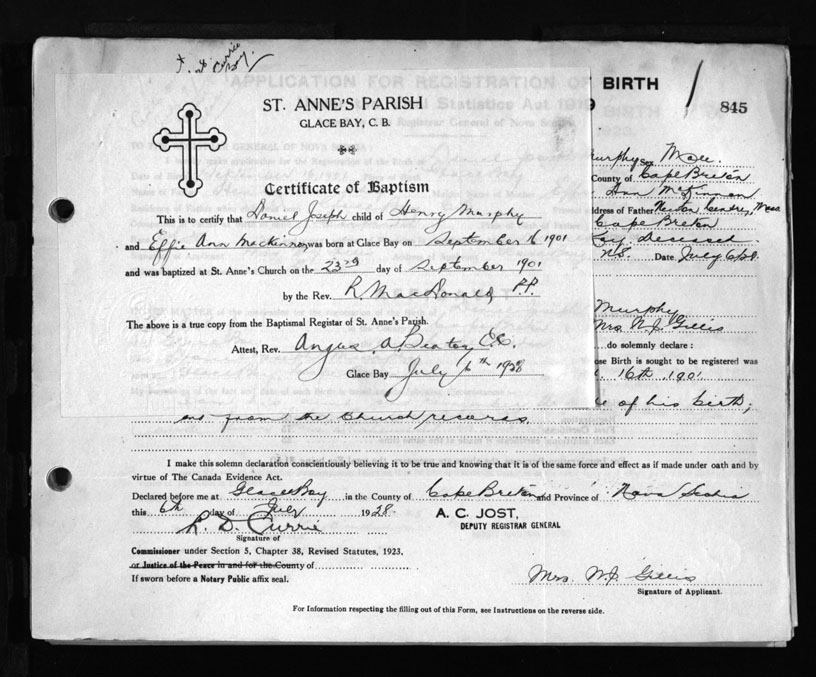 F. D. Currie
APPLICATION FOR REGISTRATION OF BIRTH
845
ST. ANNE'S PARISH
GLACE BAY, C. B.
Certificate of Baptism
This is to certify that Daniel Joseph child of Henry Murphy
and Effie Ann MacKinnon was born at Glace Bay on September 16 1901
and was baptized at St. Anne's Church on the 23rd day of September 1901
by the Rev. R. MacDonald P.P.
The above is a true copy from the Baptismal Registar of St. Anne's Parish.
Attest, Rev. Angus A. Beaton C.C.
Glace Bay July 6th 1928
Murphy Sex Male
County of Cape Breton
Ann McKinnon
Address of Father Newton Centre, Mass
Cape Breton
N.S. Date July 6
Murphy
Mrs. W. J. Gillis
do solemnly declare :
whose Birth is sought to be registered was
16th 1901
of his birth;
from the Church records.
I make this solemn declaration conscientiously believing it to be true and knowing that it is of the same force and effect as if made under oath and by
virtue of The Canada Evidence Act.
Declared before me at Glace Bay in the County of Cape Breton and Province of Nova Scotia
this 6th day of July 1928.
A. C. JOST,
DEPUTY REGISTRAR GENERAL
Signature of
Commissioner under Section 5, Chapter 38, Revised Statutes, 1923.
or Justice of the Peace in and for the County of
If sworn before a Notary Public affix seal.
Mrs. W. J. Gillis
Signature of Applicant.
For Information respecting the filling out of this Form, see Instructions on the reverse side.